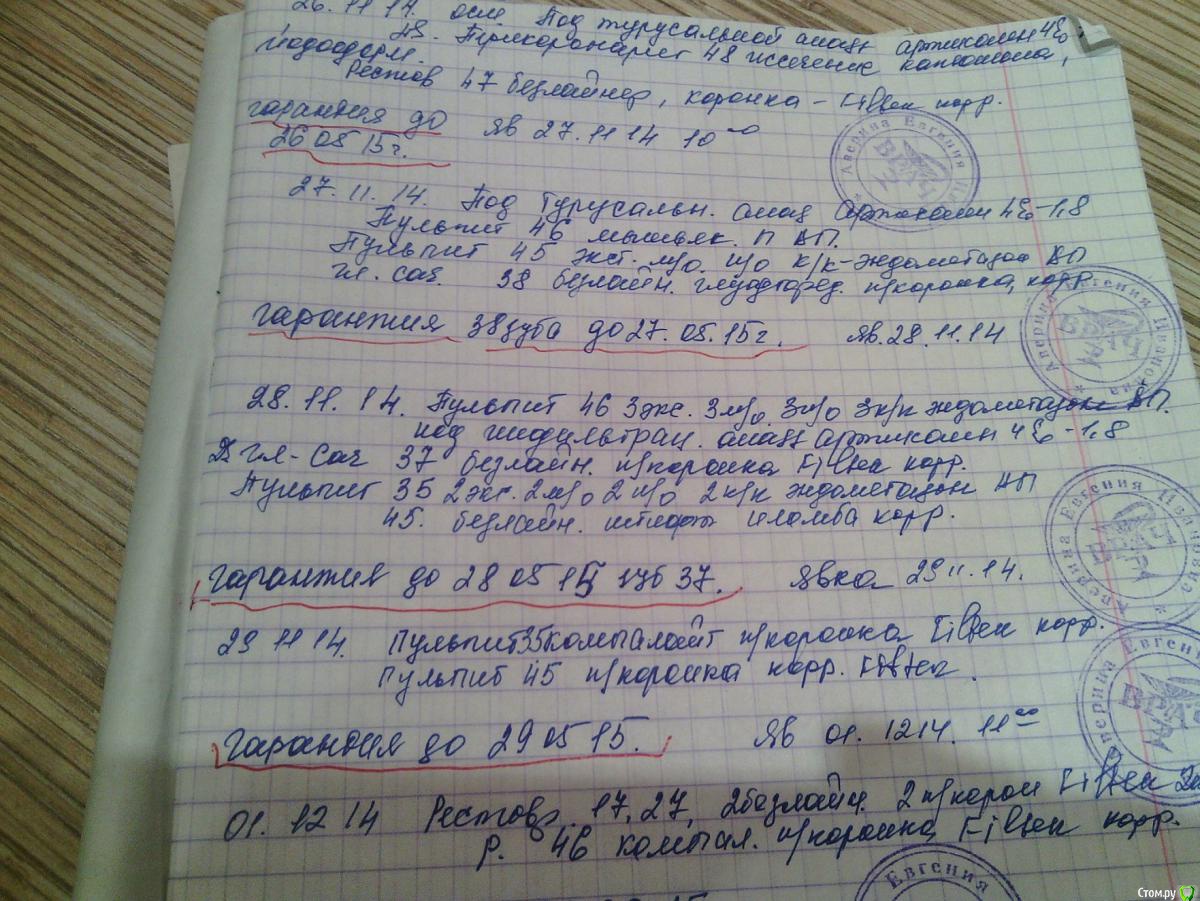 26.11.14. осм. Под турусальной анаст артикаин 4%
48. Перикоронарит 48 иссечение капюшона,
йодоформ.
Рестов 47 безлайнер, коронка - Filtek корр.
гарантия до
яв 27.11 14 10⁰⁰
26 05 15г.
27. 11. 14. Под Турусальн. анаст артикаин 4% -1,8
Пульпит 46 мышьяк. П ВП.
Пульпит 45 экст. м/о. и/о к/к-эндометазон ВП
гл. сач. 38 безлайн. п/коронка корр.
гарантия 38 зуба до 27. 05. 15г. яв. 28. 11. 14
28. 11. 14. Пульпит 46 3экс. 3м/о 3и/о 3к/к эндометазон ВП.
под инфильтрац. анаст артикаин 4% -1,8
Гл-Сач 37 безлайн. п/коронка Filtek корр.
Пульпит 35 2экс. 2м/о 2и/о 2к/к эндометазон ВП
45. безлайн. штифты пломба корр.
гарантия до 28 05 15 зуб 37. явка 29 11. 14.
29 11 14. Пульпит 35 компалайт п/коронка Filtek корр.
Пульпит 45 п/коронка корр. Filtek.
гарантия до 29 05 15. яв 01. 12 14. 11⁰⁰
01. 12 14 Рестовр. 17, 27, 2безлайн. 2 п/корон Filtek
р. 46 компал. п/коронка Filtek корр.
Аверина Евгения Ивановна
ВРАЧ
Аверина Евгения Ивановна
ВРАЧ
Аверина Евгения Ивановна
ВРАЧ
Аверина Евгения
ВРАЧ
Евгения
Стом.ру